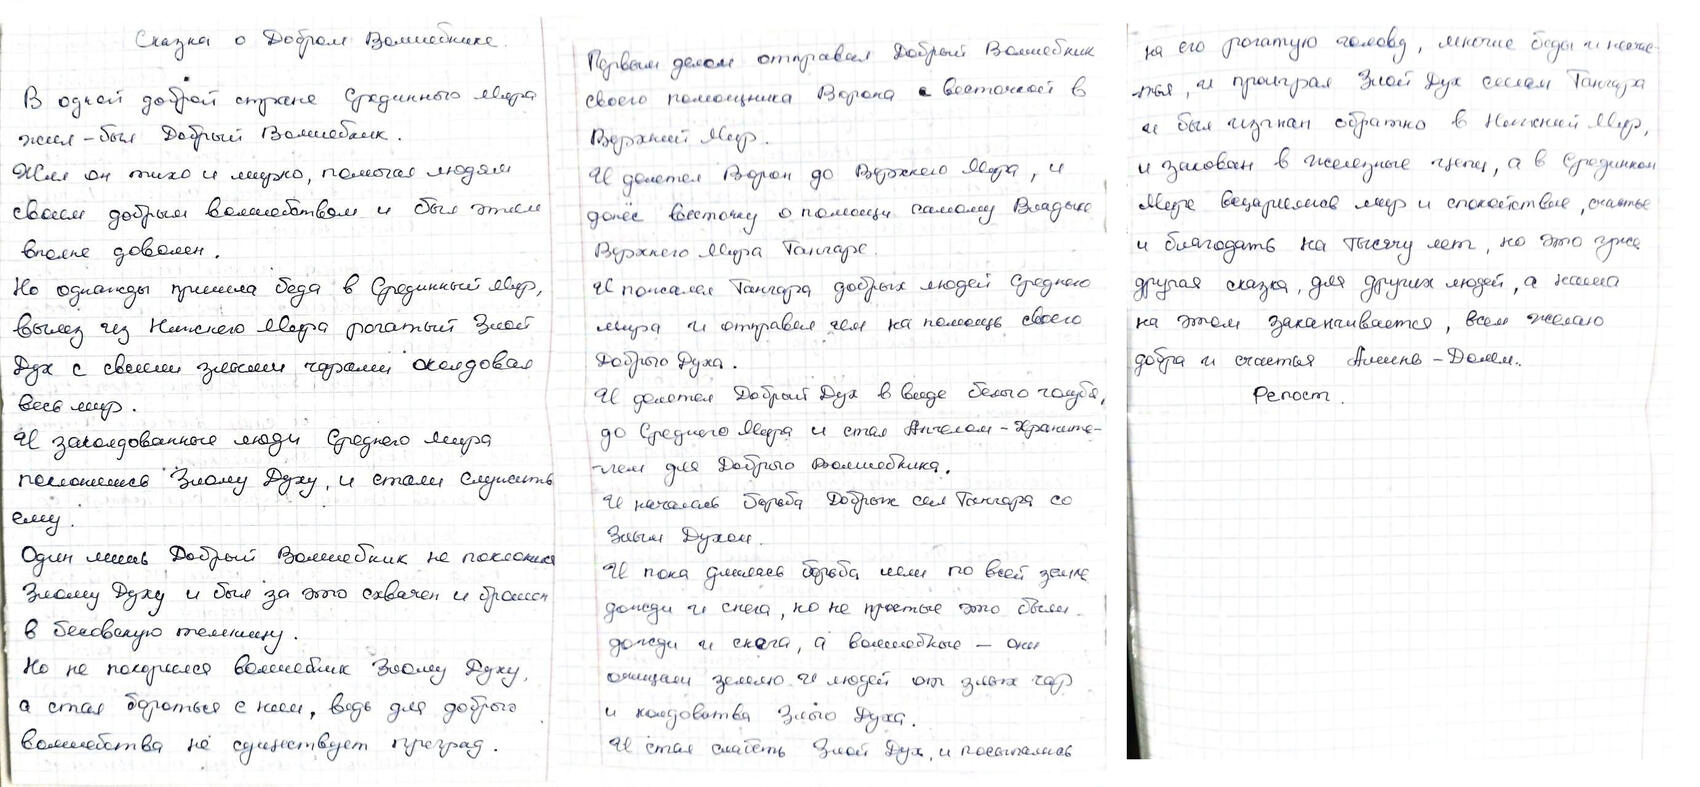 Сказка о Добром Волшебнике.
В одной доброй стране Срединного Мира
жил-был Добрый Волшебник.
Жил он тихо и мирно, помогая людям
своим добрым волшебством и был этим
вполне доволен.
Но однажды пришла беда в Срединный Мир,
вылез из Нижнего Мира рогатый Злой
Дух с своими злыми чарами околдовал
весь мир.
И заколдованные люди Среднего мира
поклонились Злому Духу, и стали служить
ему.
Один лишь Добрый Волшебник не поклонился
Злому Духу и был за это схвачен и брошен
в бесовскую темницу.
Но не покорился волшебник Злому Духу,
а стал бороться с ним, ведь для доброго
волшебства не существует преград.
Первым делом отправил Добрый Волшебник
своего помощника Ворона с весточкой в
Верхний Мир.
И долетел Ворон до Верхнего Мира, и
донёс весточку о помощи самому Владыке
Верхнего Мира Тангаре.
И пожалел Тангара добрых людей Среднего
мира и отправил им на помощь своего
Доброго Духа.
И долетел Добрый Дух в виде белого голубя,
до Среднего Мира и стал Ангелом-Храните-
-лем для Доброго Волшебника.
И началась борьба Добрых сил Тангара со
Злым Духом.
И пока длилась борьба шли по всей земле
дожди и снега, но не простые это были
дожди и снега, а волшебные - они
очищали землю и людей от злых чар
и колдовства Злого Духа.
И стал слабеть Злой Дух, и посыпались
на его рогатую голову, многие беды и несчас-
-тья, и проиграл Злой Дух силам Тангара
и был изгнан обратно в Нижний Мир,
и закован в железные цепи, а в Срединном
Мире воцарились мир и спокойствие, счастье
и благодать на тысячу лет, но это уже
другая сказка, для других людей, а наша
на этом заканчивается, всем желаю
добра и счастья Аминь-Домм..
Репост.